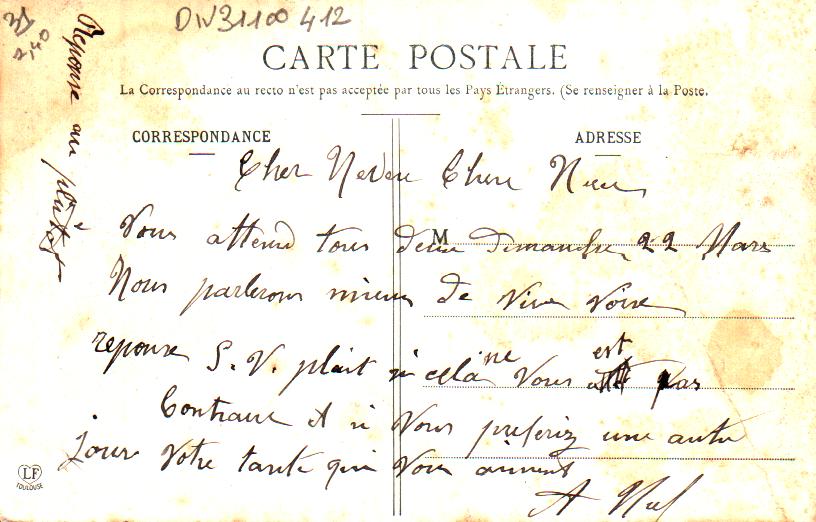 DIV31100 412
CARTE POSTALE
La Correspondance au recto n'est pas acceptée par tous les Pays Étrangers. (Se renseigner à la Poste.
CORRESPONDANCE
ADRESSE
M
Cher Neveu Chere Niece
Vous attend tous deux dimanche 22 Mars
Nous parlerons mieux de vive voixe
reponse S. V. plait si cela ne Vous est pas
Contraire et si Vous preferiz une autre
jour Votre tante qui Vous aiment
A
Reponse au plutot
LF
TOULOUSE